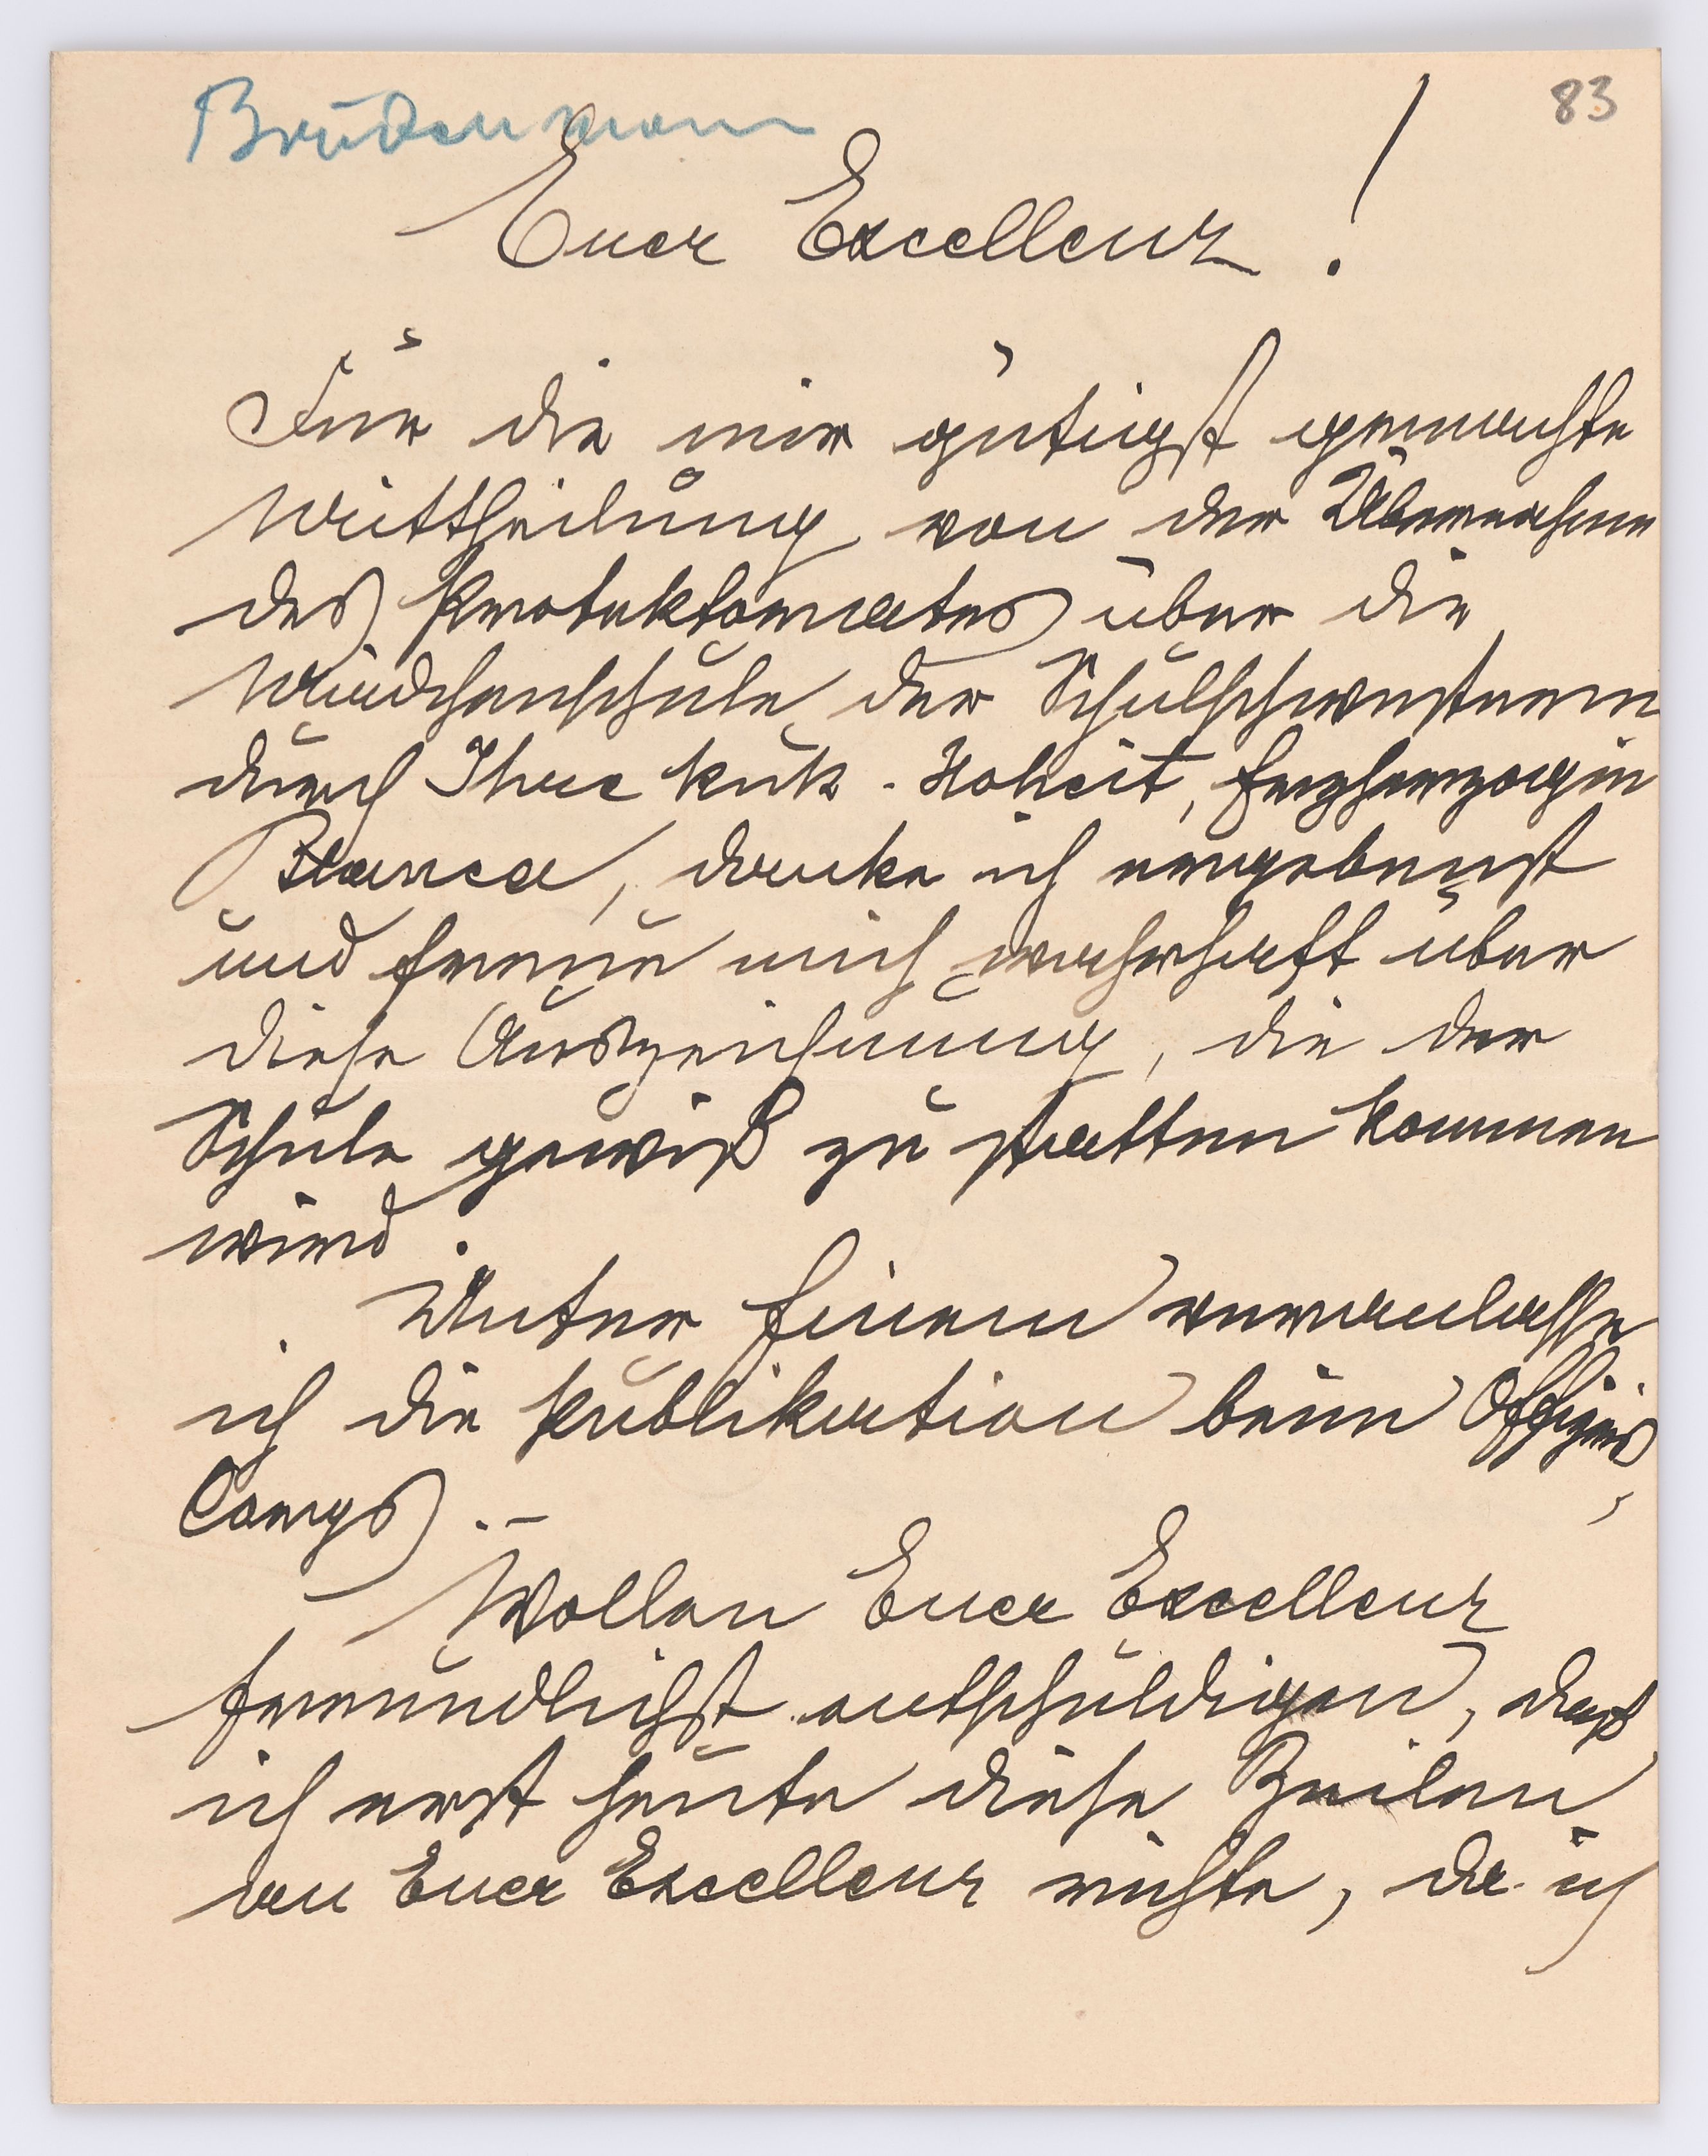 Brudermann
83
Euer Excellenz!
Für die mir gütigst gemachte
Mittheilung von der Übernahme
des Protektorates über die
Mädchenschule der Schulschwestern
durch Ihre kuk. Hoheit, Erzherzogin
Blanca, danke ich ergebenst
und freue mich wahrhaft über
diese Auszeichnung, die der
Schule gewiß zu statten kommen
wird.
Unter Einem veranlasse
ich die Publikation beim Offizirs
Corps. –
Wollen Euer Excellenz
freundlichst entschuldigen, daß
ich erst heute diese Zeilen
an Euer Excellenz richte, da ich